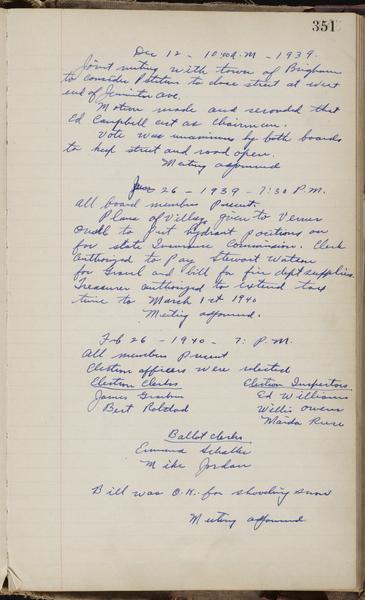 351
Dec 12 - 10 40 A.M - 1939.
Joint meeting with town of Brigham
to consider Petition to close street at west
end of Jennifer Ave.
Motion made and seconded that
Ed Campbell act as Chairman.
Vote was unanimous by both boards
to keep street and road open.
Meeting adjourned
26 - 1939 - 7:30 P.M.
All board members Present.
Plans of Village given to Verner
to Put hydrant Positions on
for state Insurance Commission. Clerk
authorized to Pay Stewart Watson
for Gravel and bill for fire dept supplies.
Treasurer authorized to extend tax
time to March 1st 1940
Meeting adjourned.
Feb 26 - 1940 - 7: P.M.
All members Present
Election officers were selected
Election Clerks Election Inspectors
James Ed Williams
Bert Willis Owens
Ballot clerks
Schaller
Mike Jordan
Bill was O.K. for shoveling snow
Meeting adjourned